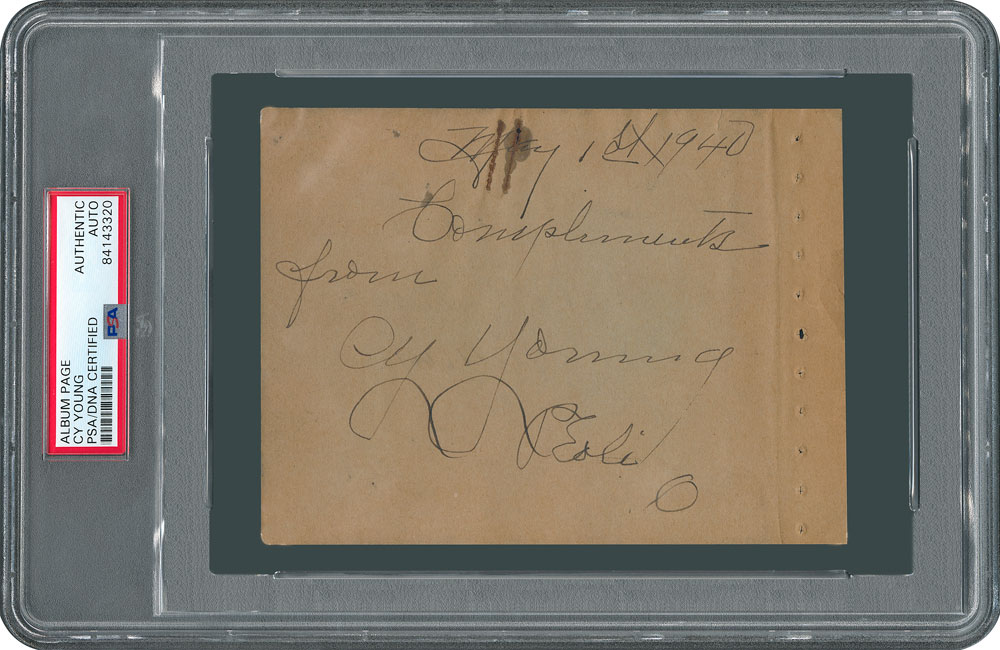 ALBUM PAGE
CY YOUNG
PSA/DNA CERTIFIED
AUTHENTIC
AUTO
84143320
PSA
May 1st 1940
Complements
from
Cy Young
Peoli
O